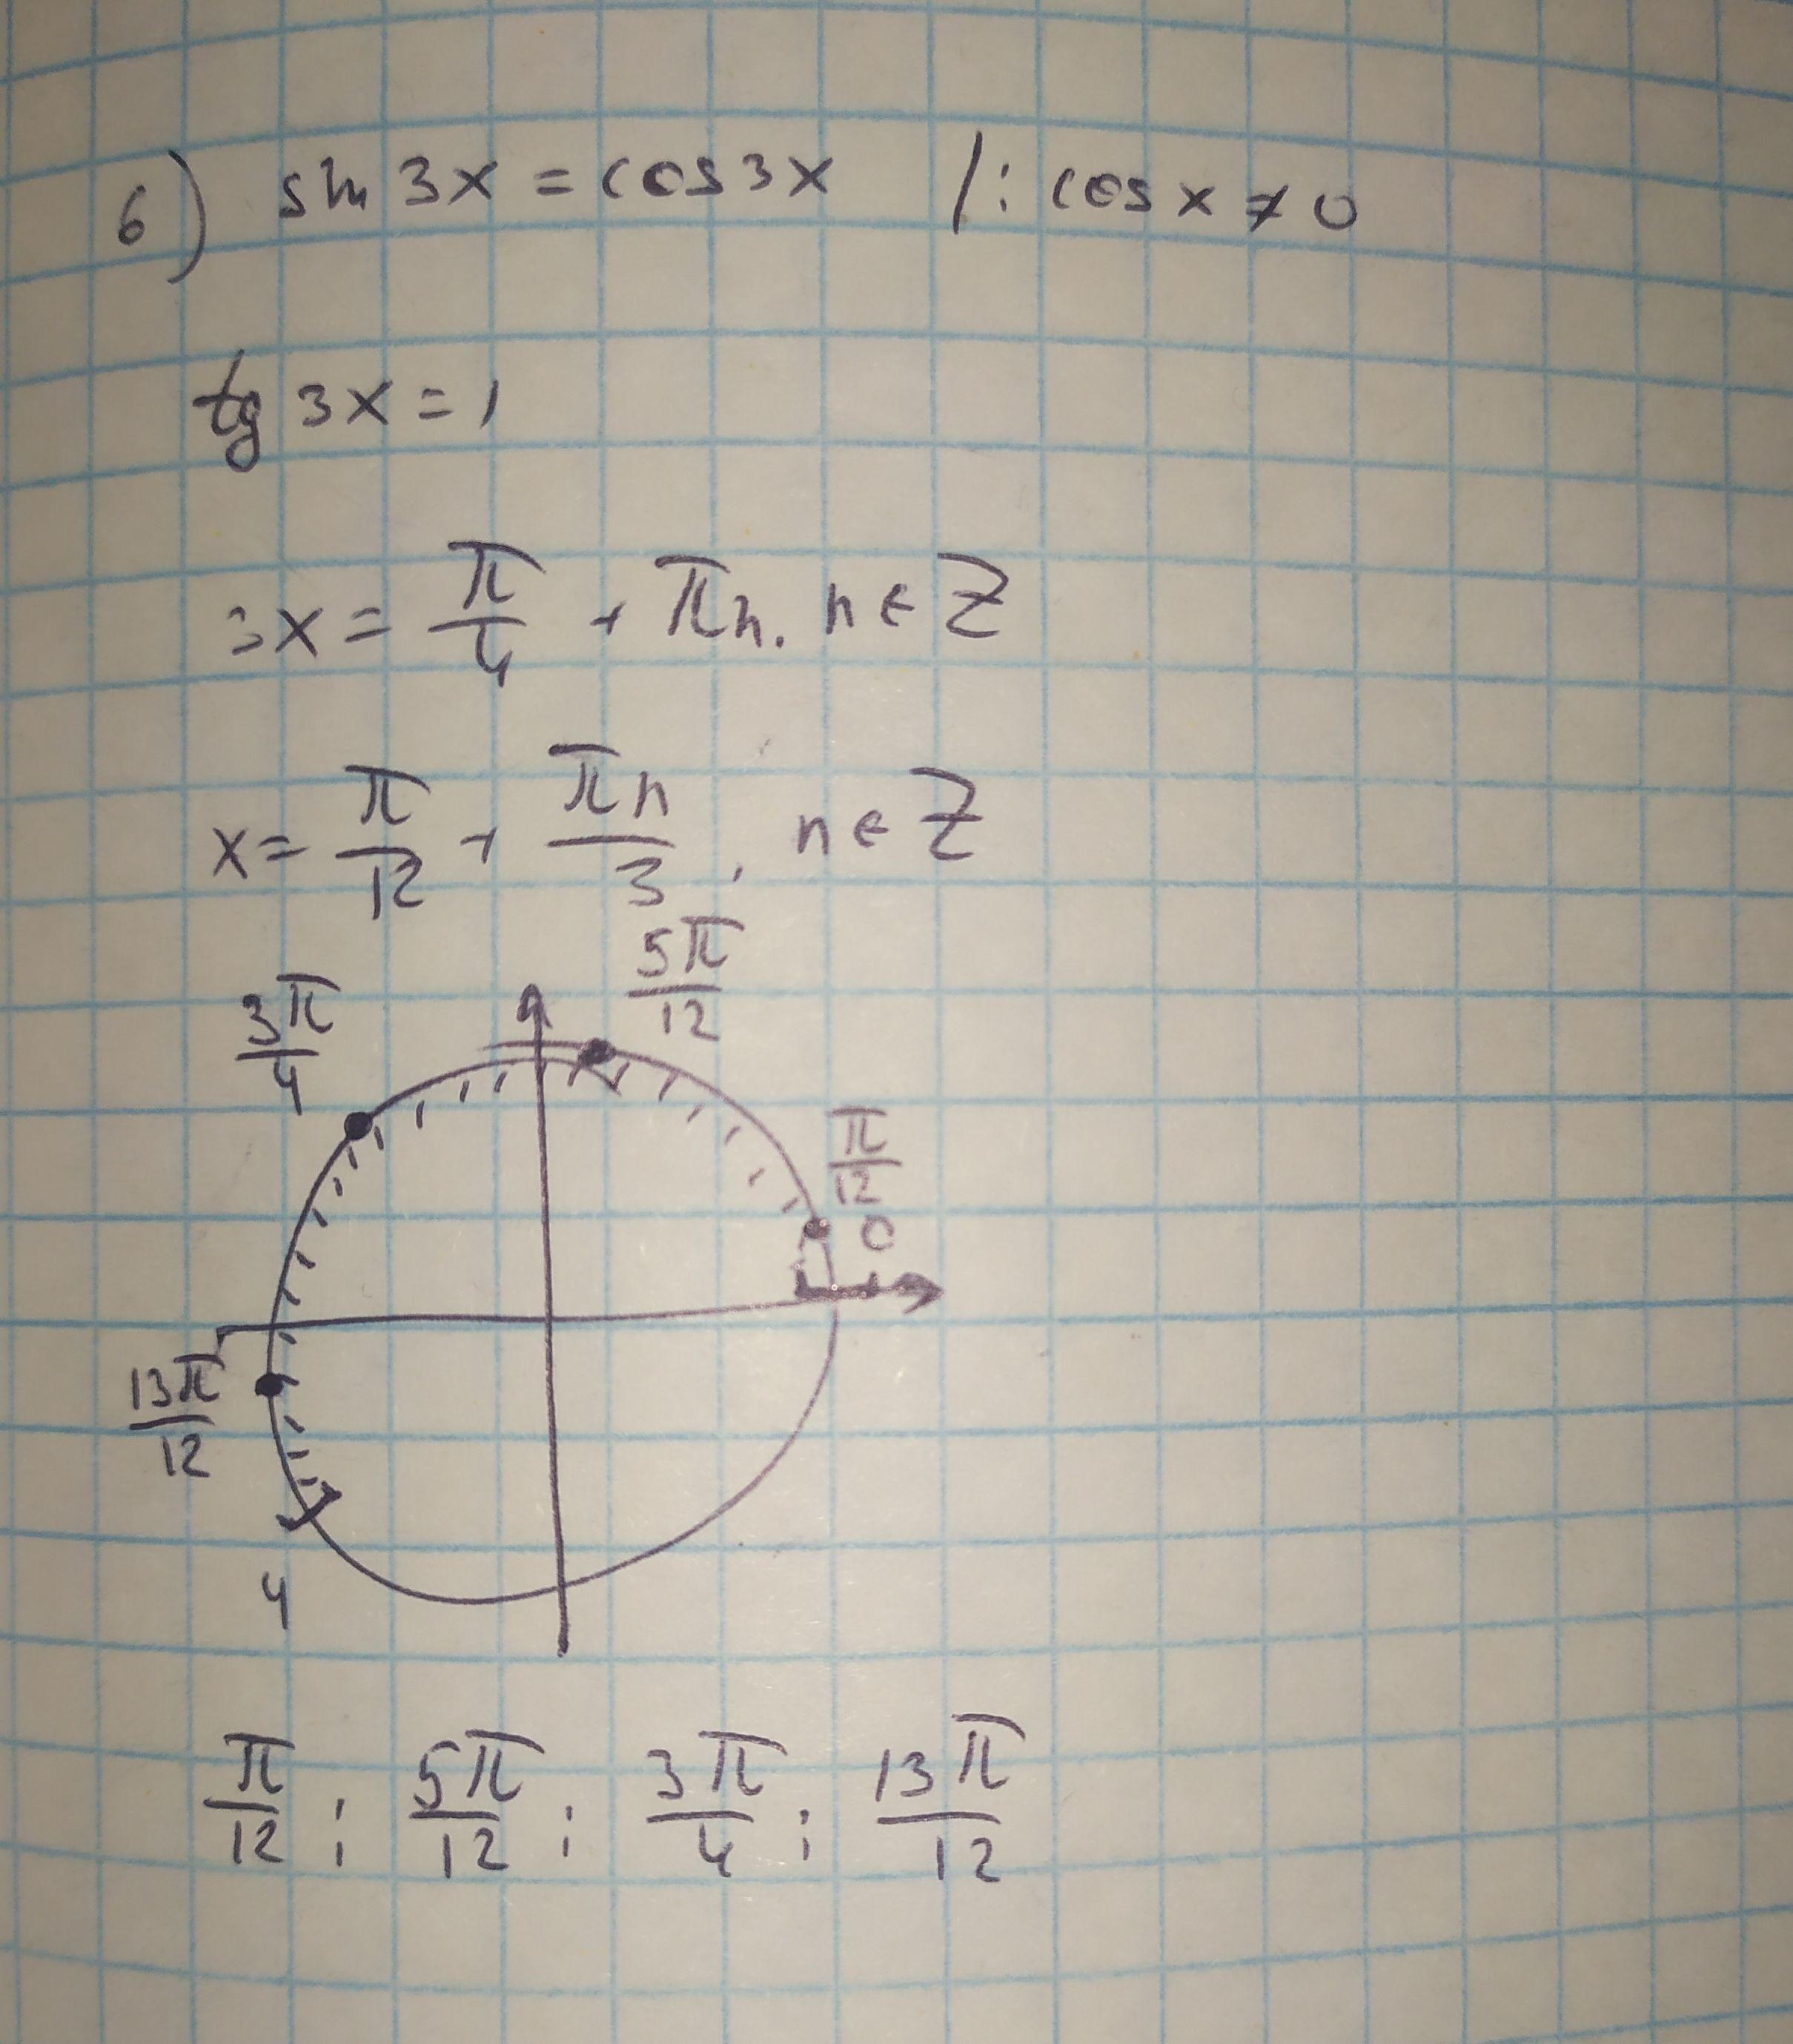 б) sin 3x = cos 3x /: cos x ≠ 0
tg 3x = 1
3x = π/4 + πn, n ∈ Z
x = π/12 + πn/3, n ∈ Z
5π/12
3π/4
π/12
0
13π/12
4
π/12 ; 5π/12 ; 3π/4 ; 13π/12